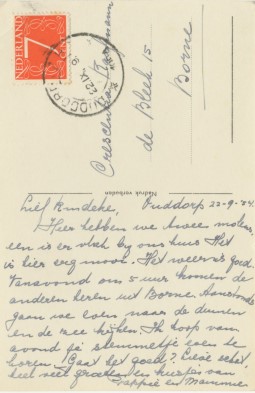 NEDERLAND
7
CENT
OUDDORP
22 IX
de Bleek 15
Borne
Nadruk verboden
Lief kindeke, Ouddorp 22-9-'54
Hier hebben we twee molens
een is er vlak by ons huis Het
is hier erg mooi. Het weer is goed
Vanavond om 5 uur komen de
anderen heren uit Borne. Aanstonds
gaan we even naar de duinen
en de zee kijken. Ik hoop van
avond je stemmetje even te
horen. Gaat het goed?
heel veel groeten en kusjes van
Pappie en Mammie